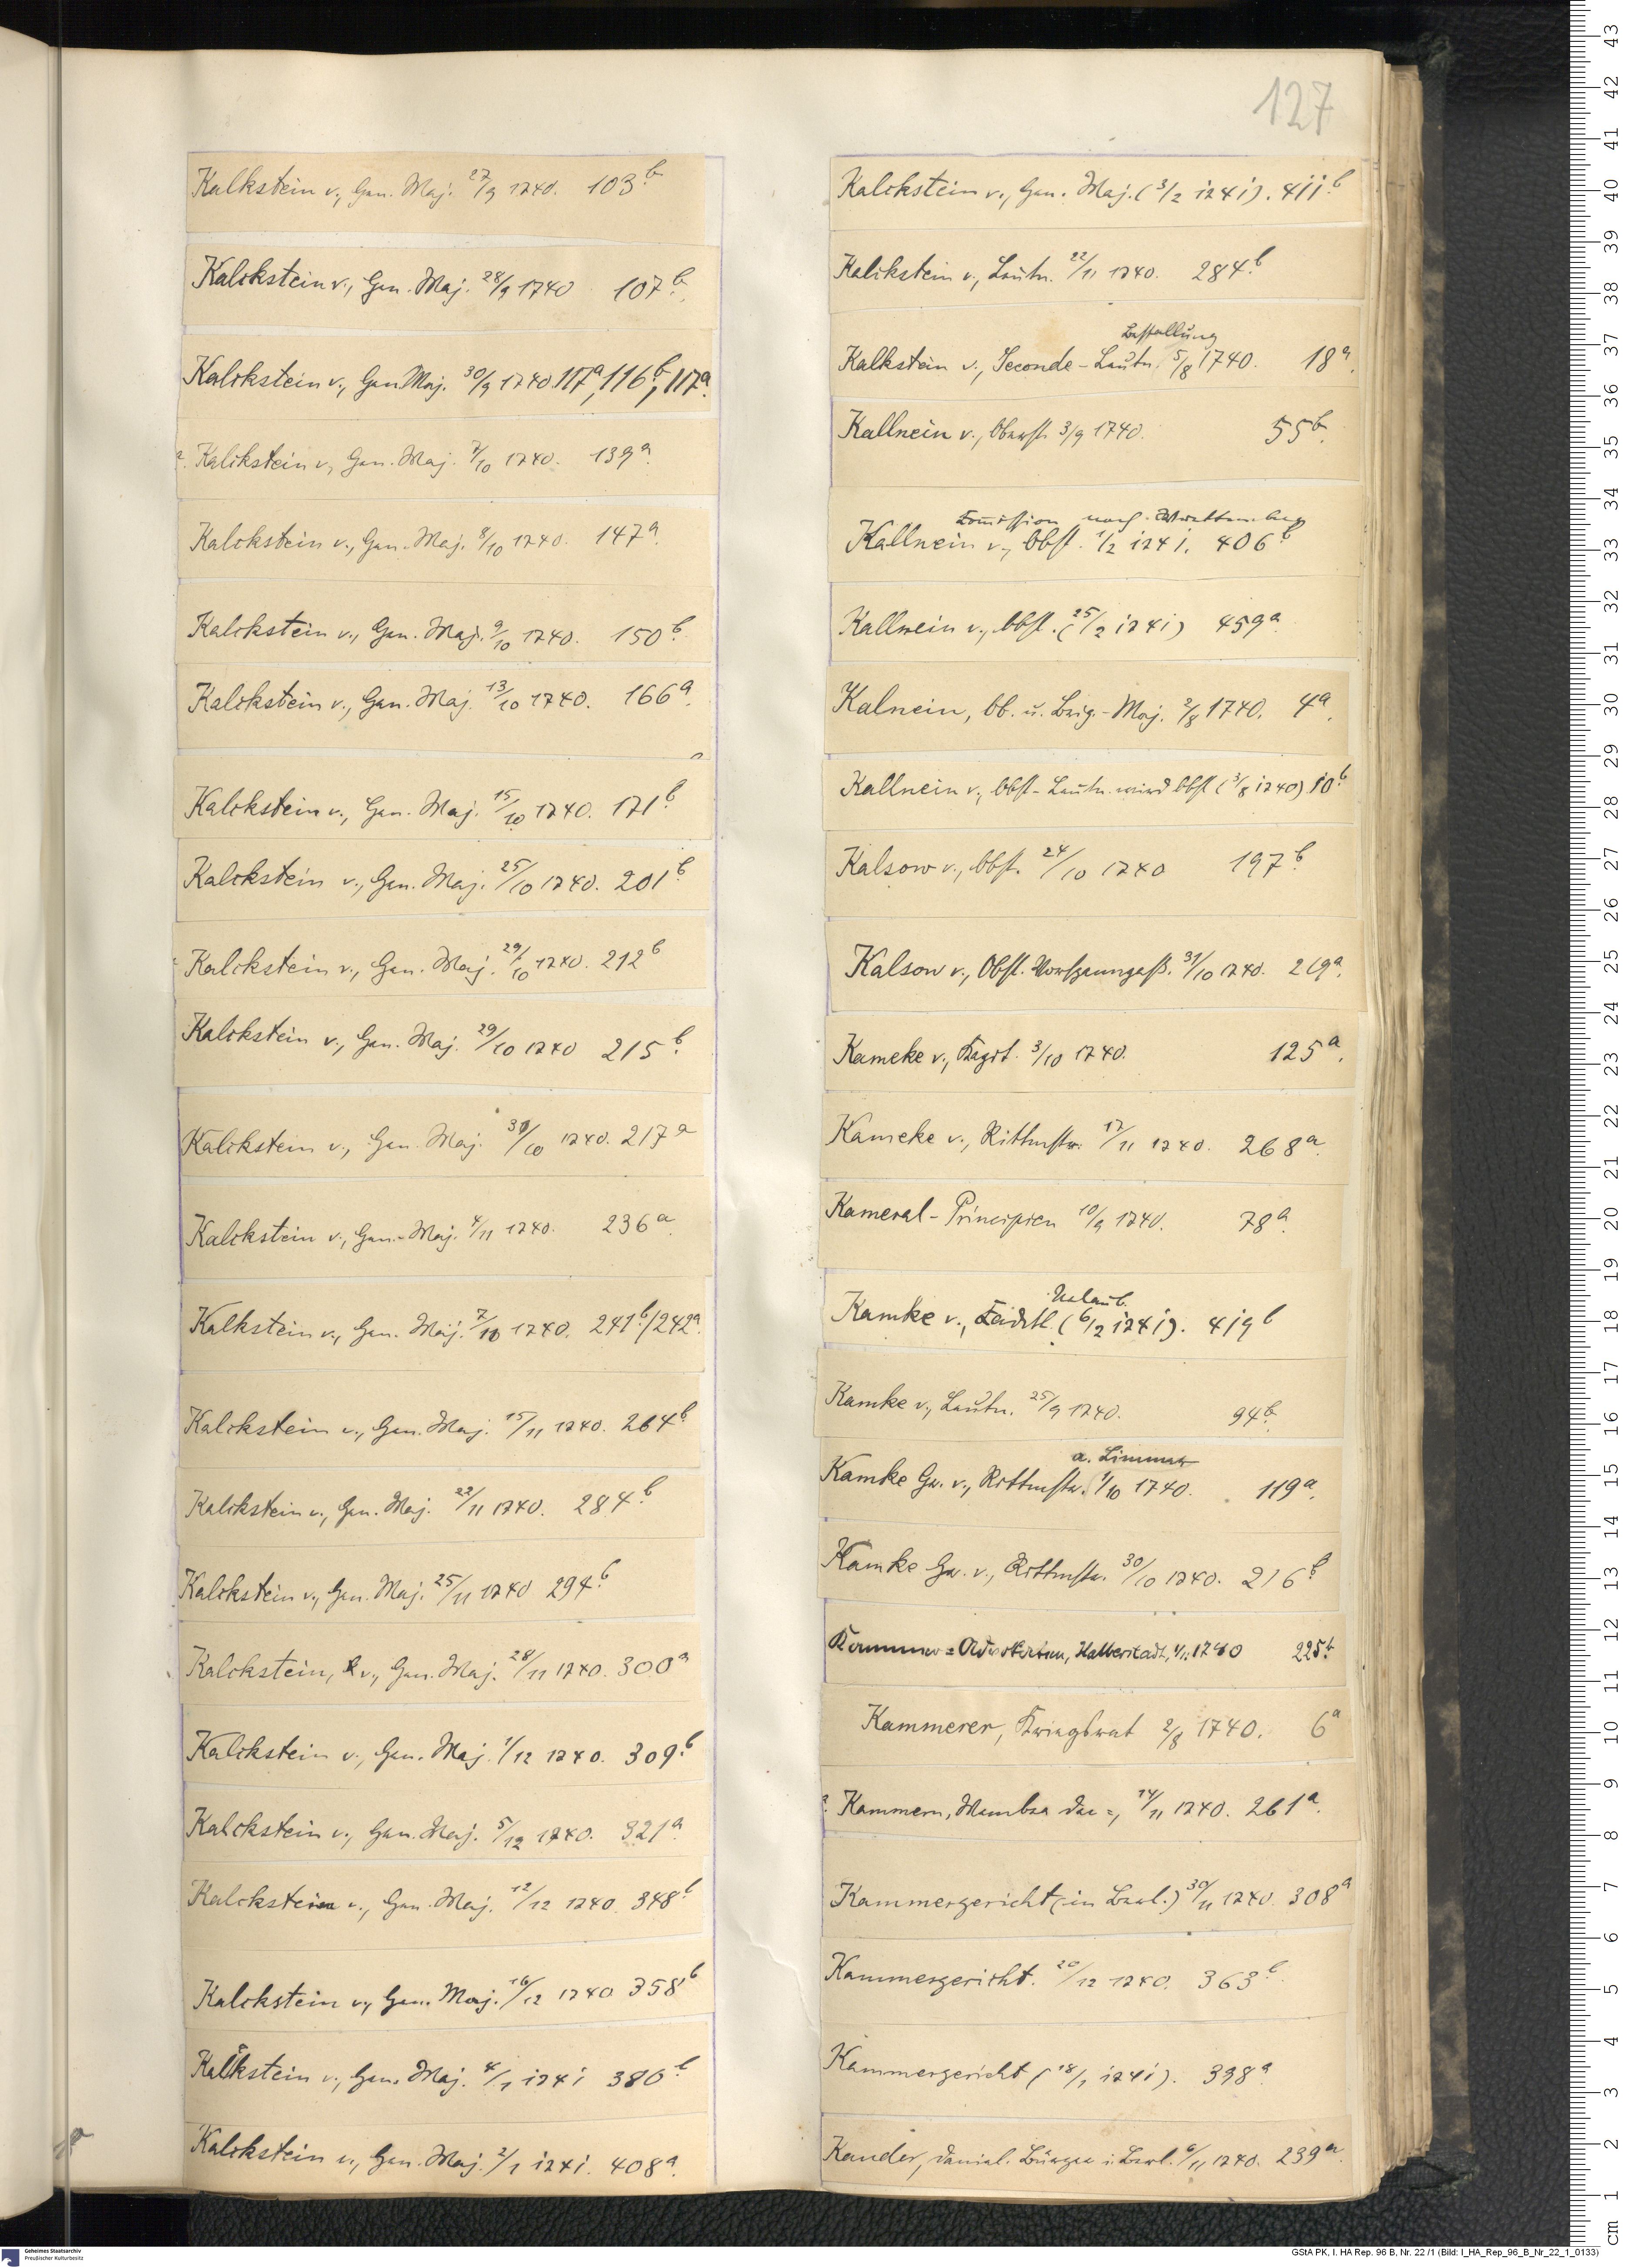 127
Kalkstein v., Gen. Maj. 27/9 1740. 103b
Kalckstein v., Gen. Maj. 28/9 1740 107b.
Kalckstein v., Gen Maj. 30/9 1740 117a, 116b, 117a.
Kalckstein v., Gen. Maj. 7/10 1740. 139a.
Kalckstein v., Gen. Maj. 8/10 1740. 147a.
Kalckstein v., Gen. Maj. 9/10 1740. 150b.
Kalckstein v., Gen. Maj. 13/10 1740. 166a.
Kalckstein v., Gen. Maj. 15/10 1740. 171b
Kalckstein v., Gen. Maj. 25/10 1740. 201b.
Kalckstein v., Gen. Maj. 29/10 1740. 212b
Kalckstein v., Gen. Maj. 29/10 1740 215b.
Kalckstein v., Gen. Maj. 31/10 1740. 217a
Kalckstein v., Gen. Maj. 4/11 1740. 236a.
Kalkstein v., Gen. Maj. 7/11 1740. 241b/242a.
Kalckstein v., Gen. Maj. 15/11 1740. 264b
Kalckstein v., Gen. Maj. 22/11 1740. 284b
Kalckstein v., Gen. Maj. 25/11 1740 294b
Kalckstein, v., Gen. Maj. 28/11 1740. 300a
Kalckstein v., Gen. Maj. 1/12 1740. 309b
Kalckstein v., Gen. Maj. 5/12 1740. 321a.
Kalckstein v., Gen. Maj. 12/12 1740. 348b
Kalckstein v., Gen. Maj. 16/12 1740 358b
Kalckstein v., Gen. Maj. 4/1 1741 380b
Kalckstein v., Gen. Maj. 2/1 1741. 408a.
Kalckstein v., Gen. Maj. (3/2 1741). 411b
Kalckstein v., Leutn. 22/11 1740. 284b
Bestallung
Kalkstein v., Seconde-Leutn. 5/8 1740. 18a.
Kallnein v., Oberst. 3/9 1740. 55b.
Comission nach
Kallnein v., Obst. 1/2 1741. 406b
Kallnein v., Obst. (25/2 1741) 459a
Kalnein, Ob. u. Brig.-Maj. 2/8 1740. 4a.
Kallnein v., Obst-Leutn. wird Obst (3/8 1740) 10b
Kalsow v., Obst. 24/10 1740 197b
Kalsow v., Obst. 31/10 1740. 219a.
Kameke v., 3/10 1740. 125a.
Kameke v., Rittmstr. 17/11 1740. 268a.
Kameral-Principien 10/9 1740. 78a.
Urlaub.
Kamke v., (6/2 1741). 419b
Kamke v., Leutn. 25/9 1740. 94b.
Kamke Gr. v., Rittmstr. 1/10 1740. 119a.
Kamke Gr. v., Rittmstr. 30/10 1740. 216b
Kammer= Halberstadt, 1/11 1740 225b.
Kammerer, Kriegsrat 2/8 1740. 6a
Kammern, der =, 14/11 1740. 261a.
Kammergericht (in Berl.) 30/11 1740. 308a
Kammergericht. 20/12 1740. 363b.
Kammergericht (18/1 1741). 398a.
Kander, Daniel. Bürger i. Berl. 6/11 1740. 239a.
Geheimes Staatsarchiv
Preußischer Kulturbesitz
GStA PK, I. HA Rep. 96 B, Nr. 22 /1 (Bild: I_HA_Rep_96_B_Nr_22_1_0133)